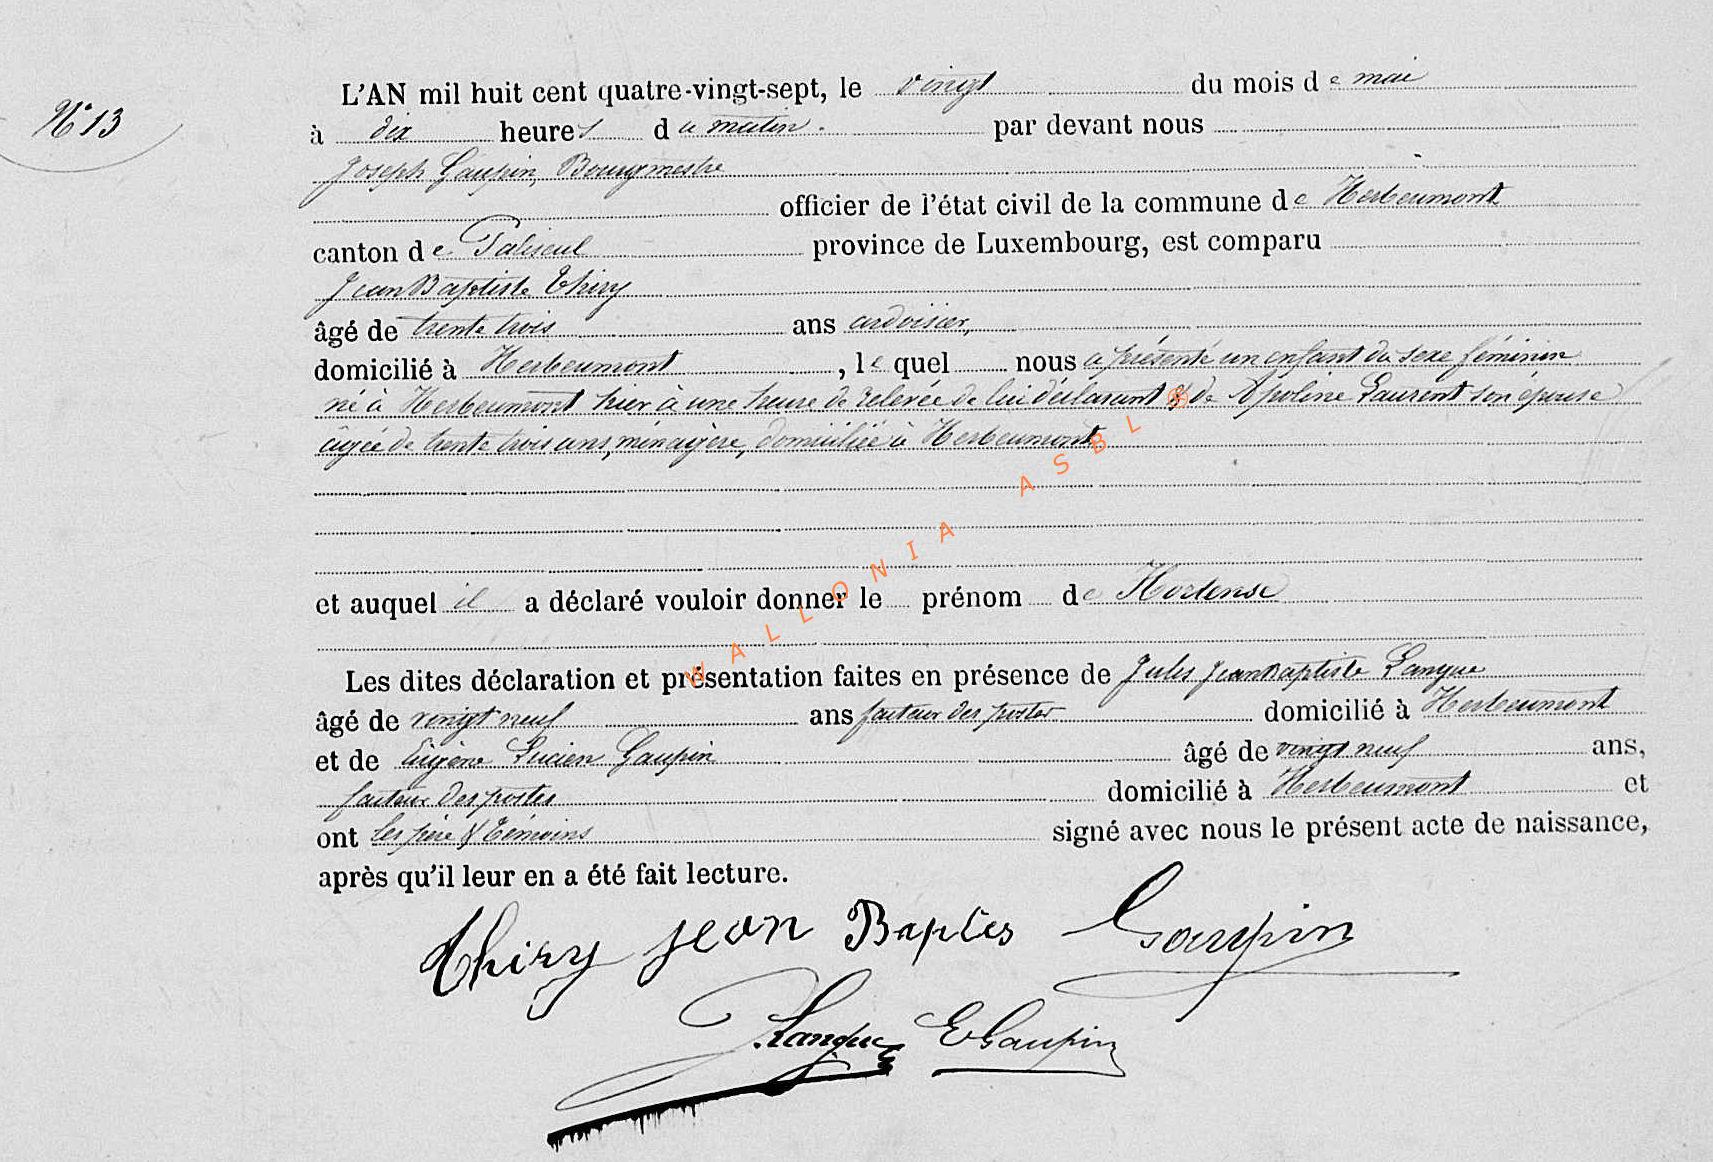 N° 13
L'AN mil huit cent quatre-vingt-sept, le vingt du mois de mai
à dix heures du matin. par devant nous
Joseph Gaupin, Bourgmestre
officier de l'état civil de la commune de Herbeumont
canton de Paliseul province de Luxembourg, est comparu
Jean Baptiste Thiry
âgé de trente trois ans ardoisier,
domicilié à Herbeumont, le quel nous a présenté un enfant du sexe féminin
né à Herbeumont hier à une heure de relevée de lui déclarant & de Apoline Laurent son épouse
âgée de trente trois ans, ménagère, domiciliée à Herbeumont
et auquel il a déclaré vouloir donner le prénom de Hortense
Les dites déclaration et présentation faites en présence de Jules Jean Baptiste Langue
âgé de vingt neuf ans facteur des postes domicilié à Herbeumont
et de Eugène Lucien Gaupin âgé de vingt neuf ans,
facteur des postes domicilié à Herbeumont et
ont les père & témoins signé avec nous le présent acte de naissance,
après qu'il leur en a été fait lecture.
Thiry Jean Baptes Gaupin
Langue E Gaupin
WALLONIA ASBL ®